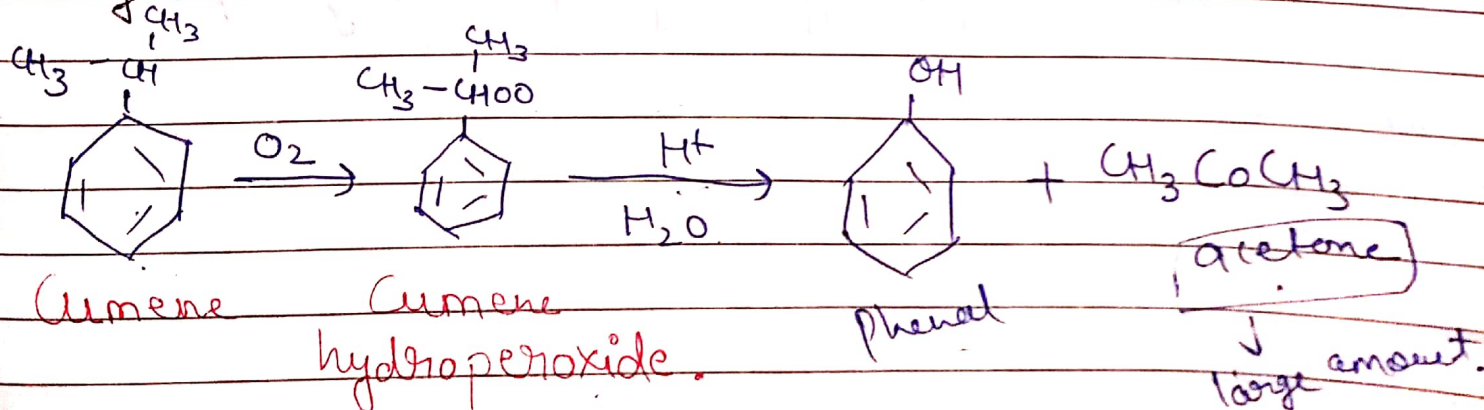 CH3
CH3 - CH
CH3
CH3 - CHOO
OH
O2
H+
H2O
+ CH3 CO CH3
acetone
Cumene
Cumene
hydroperoxide.
Phenol
large amount.